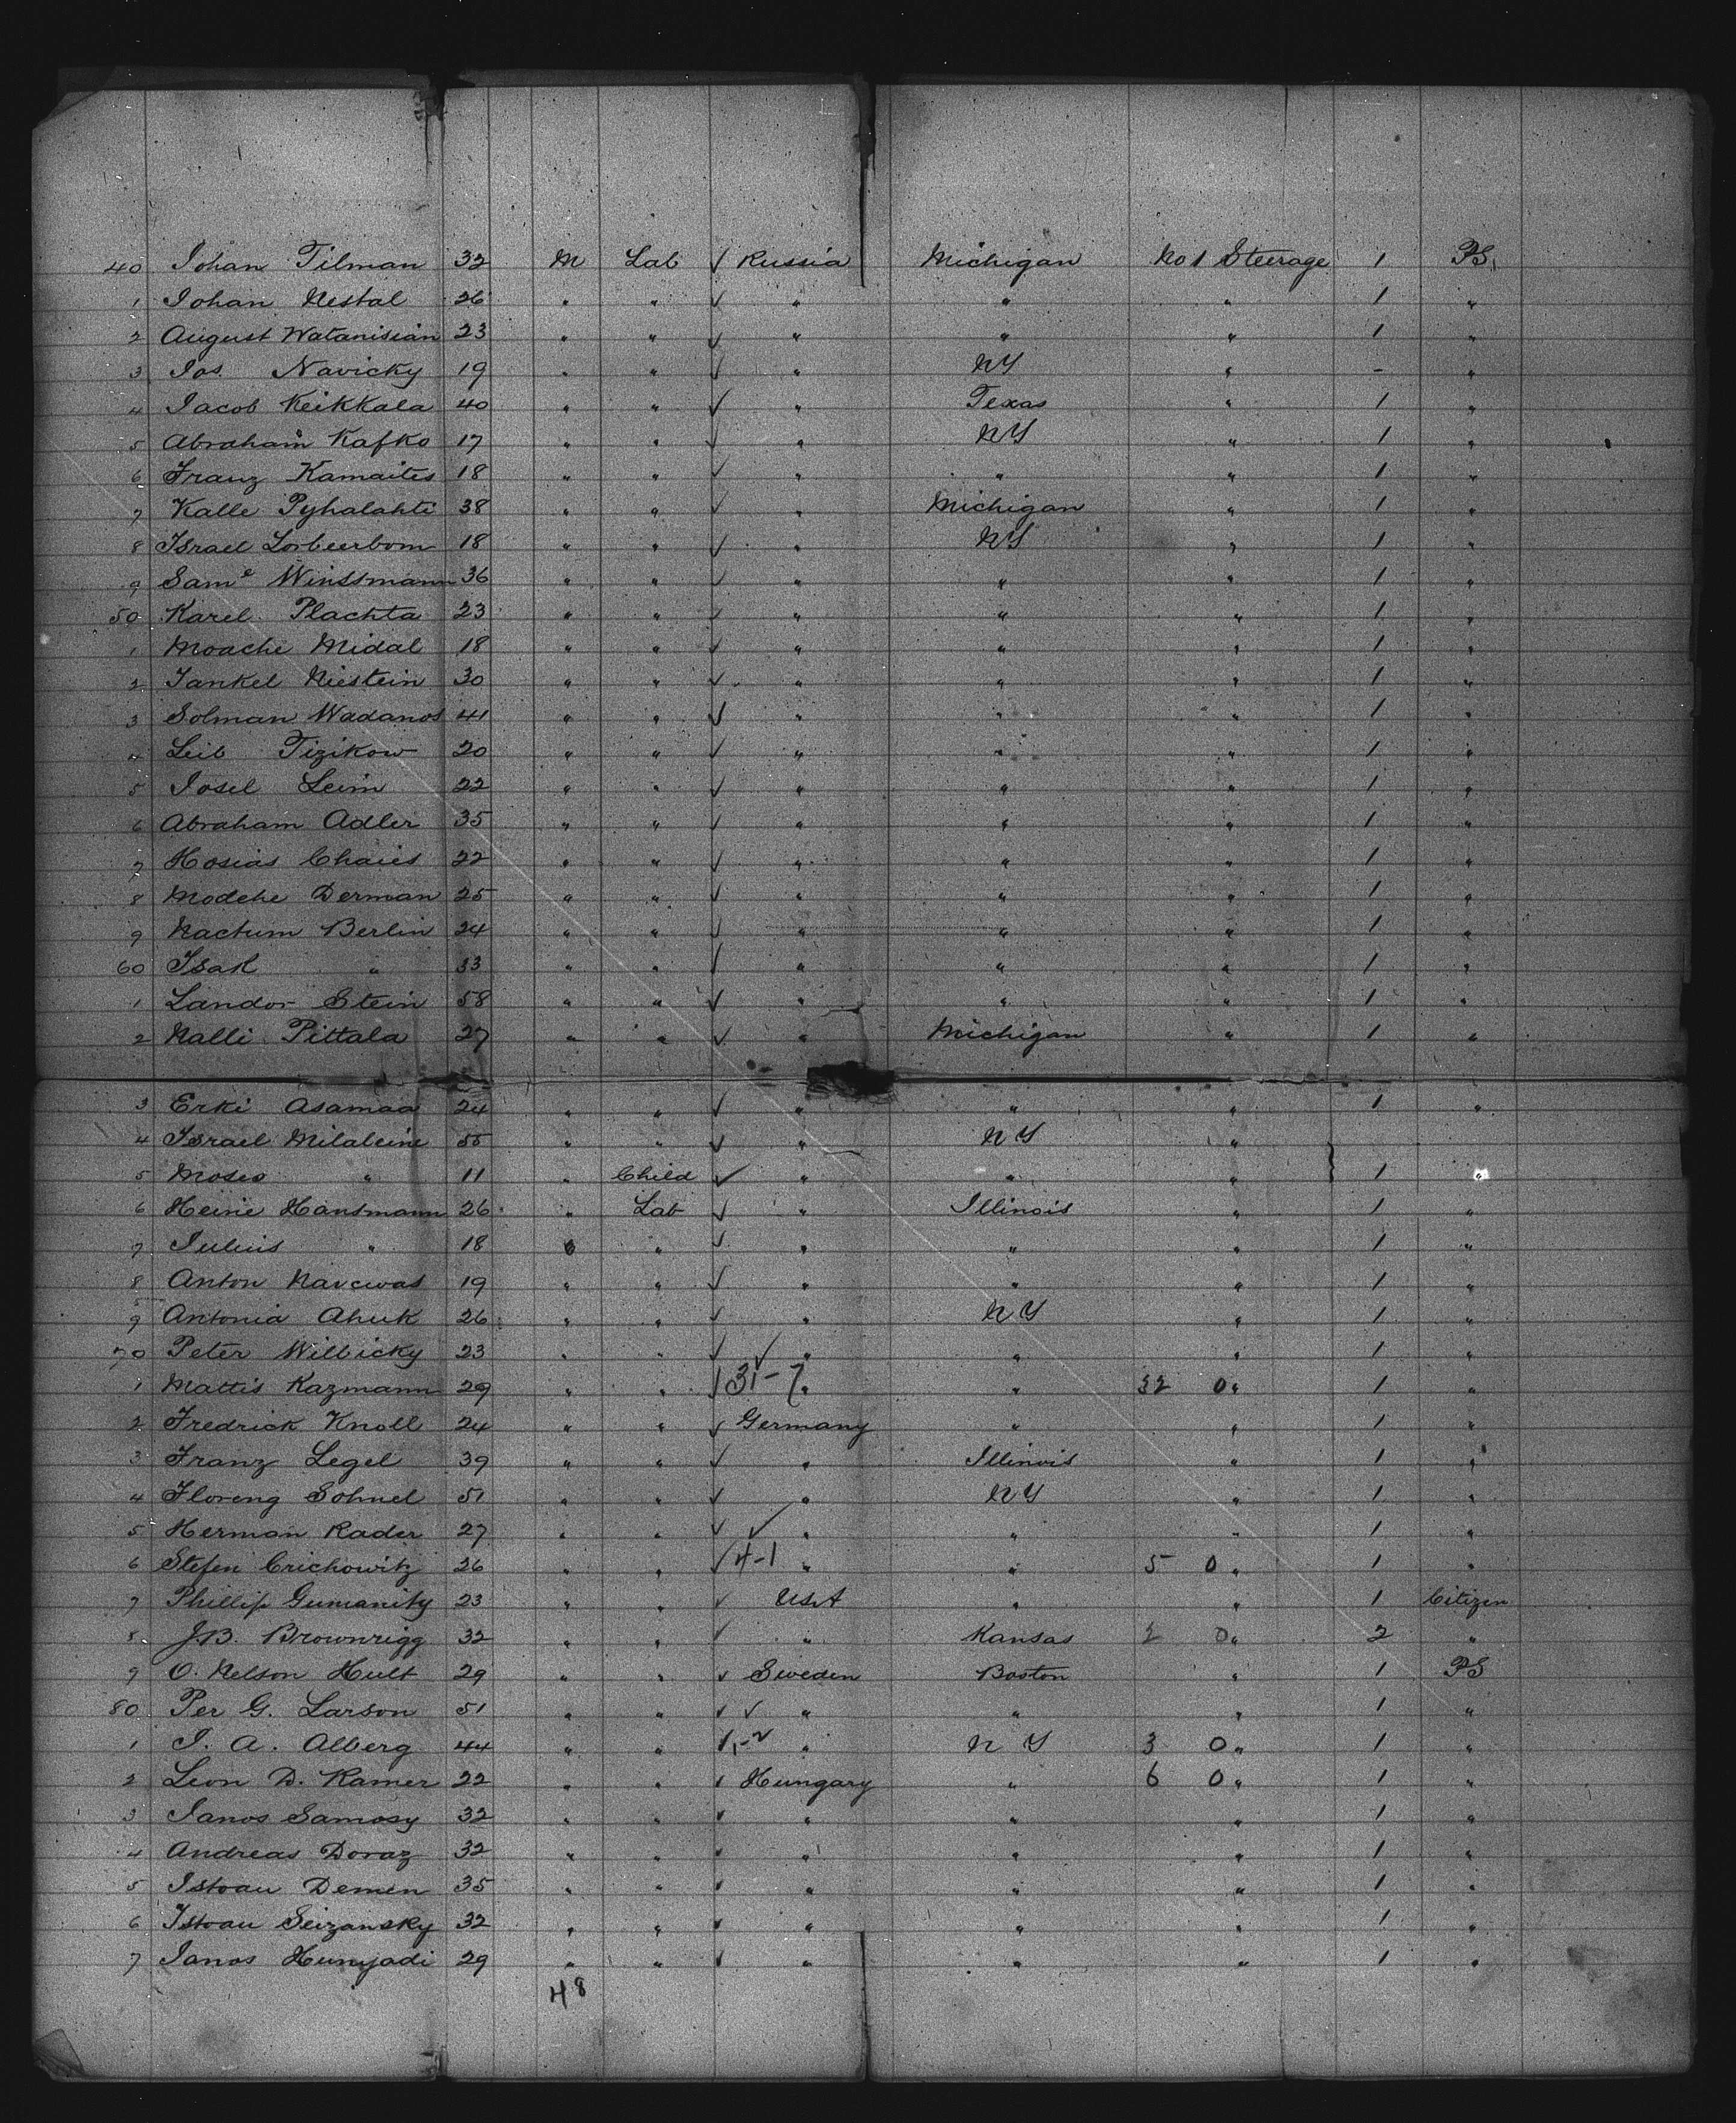 40 Johan Tilman 32 M Lab √ Russia Michigan No 1 Steerage 1 PS.
1 Johan Nestal 26 " " √ " " " 1 "
2 August Watanisian 23 " " √ " " " 1 "
3 Jos. Navicky 19 " " √ " NY " - "
4 Jacob Keikkala 40 " " √ " Texas " 1 "
5 Abraham Kafko 17 " " √ " NY " 1 "
6 Franz Kamaites 18 " " √ " " " 1 "
7 Kalle Pyhalahti 38 " " √ " Michigan " 1 "
8 Israel Lorbeerbom 18 " " √ " NY " 1 "
9 Saml Winssmann 36 " " √ " " " 1 "
50 Karel Plachta 23 " " √ " " " 1 "
1 Moache Midal 18 " " √ " " " 1 "
2 Jankel Niestein 30 " " √ " " " 1 "
3 Solman Wadanos 41 " " √ " " " 1 "
4 Leib Tizikow 20 " " √ " " " 1 "
5 Josel Leim 22 " " √ " " " 1 "
6 Abraham Adler 35 " " √ " " " 1 "
7 Hosias Chaies 22 " " √ " " " 1 "
8 Modche Derman 25 " " √ " " " 1 "
9 Nachum Berlin 24 " " √ " " " 1 "
60 Isak " 33 " " √ " " " 1 "
1 Landor Stein 58 " " √ " " " 1 "
2 Nalli Pittala 27 " " √ " Michigan " 1 "
3 Erki Asamaa 24 " " √ " " " 1 "
4 Israel Milaleine 55 " " √ " NY "
5 Moses " 11 " Child √ " " " } 1 "
6 Heine Hansmann 26 " Lab √ " Illinois " 1 "
7 Julius " 18 " " √ " " " 1 "
8 Anton Navcwas 19 " " √ " " " 1 "
9 Antonia Ahuk 26 " " √ " NY " 1 "
70 Peter Wilbicky 23 " " √ √ " " " 1 "
1 Mattis Kazmann 29 " " √ 31-7 " " 32 0 " 1 "
2 Fredrick Knoll 24 " " √ Germany " " 1 "
3 Franz Legel 39 " " √ " Illinois " 1 "
4 Floreng Sohnel 51 " " √ " NY " 1 "
5 Herman Rader 27 " " √ √ " " " 1 "
6 Stefen Crichowitz 26 " " √ 4-1 " " 5 0 " 1 "
7 Phillip Gumanity 23 " " √ USA " " 1 Citizen
8 J.B. Brownrigg 32 " " √ " Kansas 2 0 " 2 "
9 O. Nelson Hult 29 " " √ Sweden Boston " 1 PS
80 Per G. Larson 51 " " √ √ " " " 1 "
1 J. A. Alberg 44 " " √ 1-2 " NY 3 0 " 1 "
2 Leon D. Kamer 22 " " √ Hungary " 6 0 " 1 "
3 Janos Samosy 32 " " √ " " " 1 "
4 Andreas Doraz 32 " " √ " " " 1 "
5 Istvau Demen 35 " " √ " " " 1 "
6 Istvau Seizansky 32 " " √ " " " 1 "
7 Janos Hunyadi 29 " " √ " " " 1 "
48